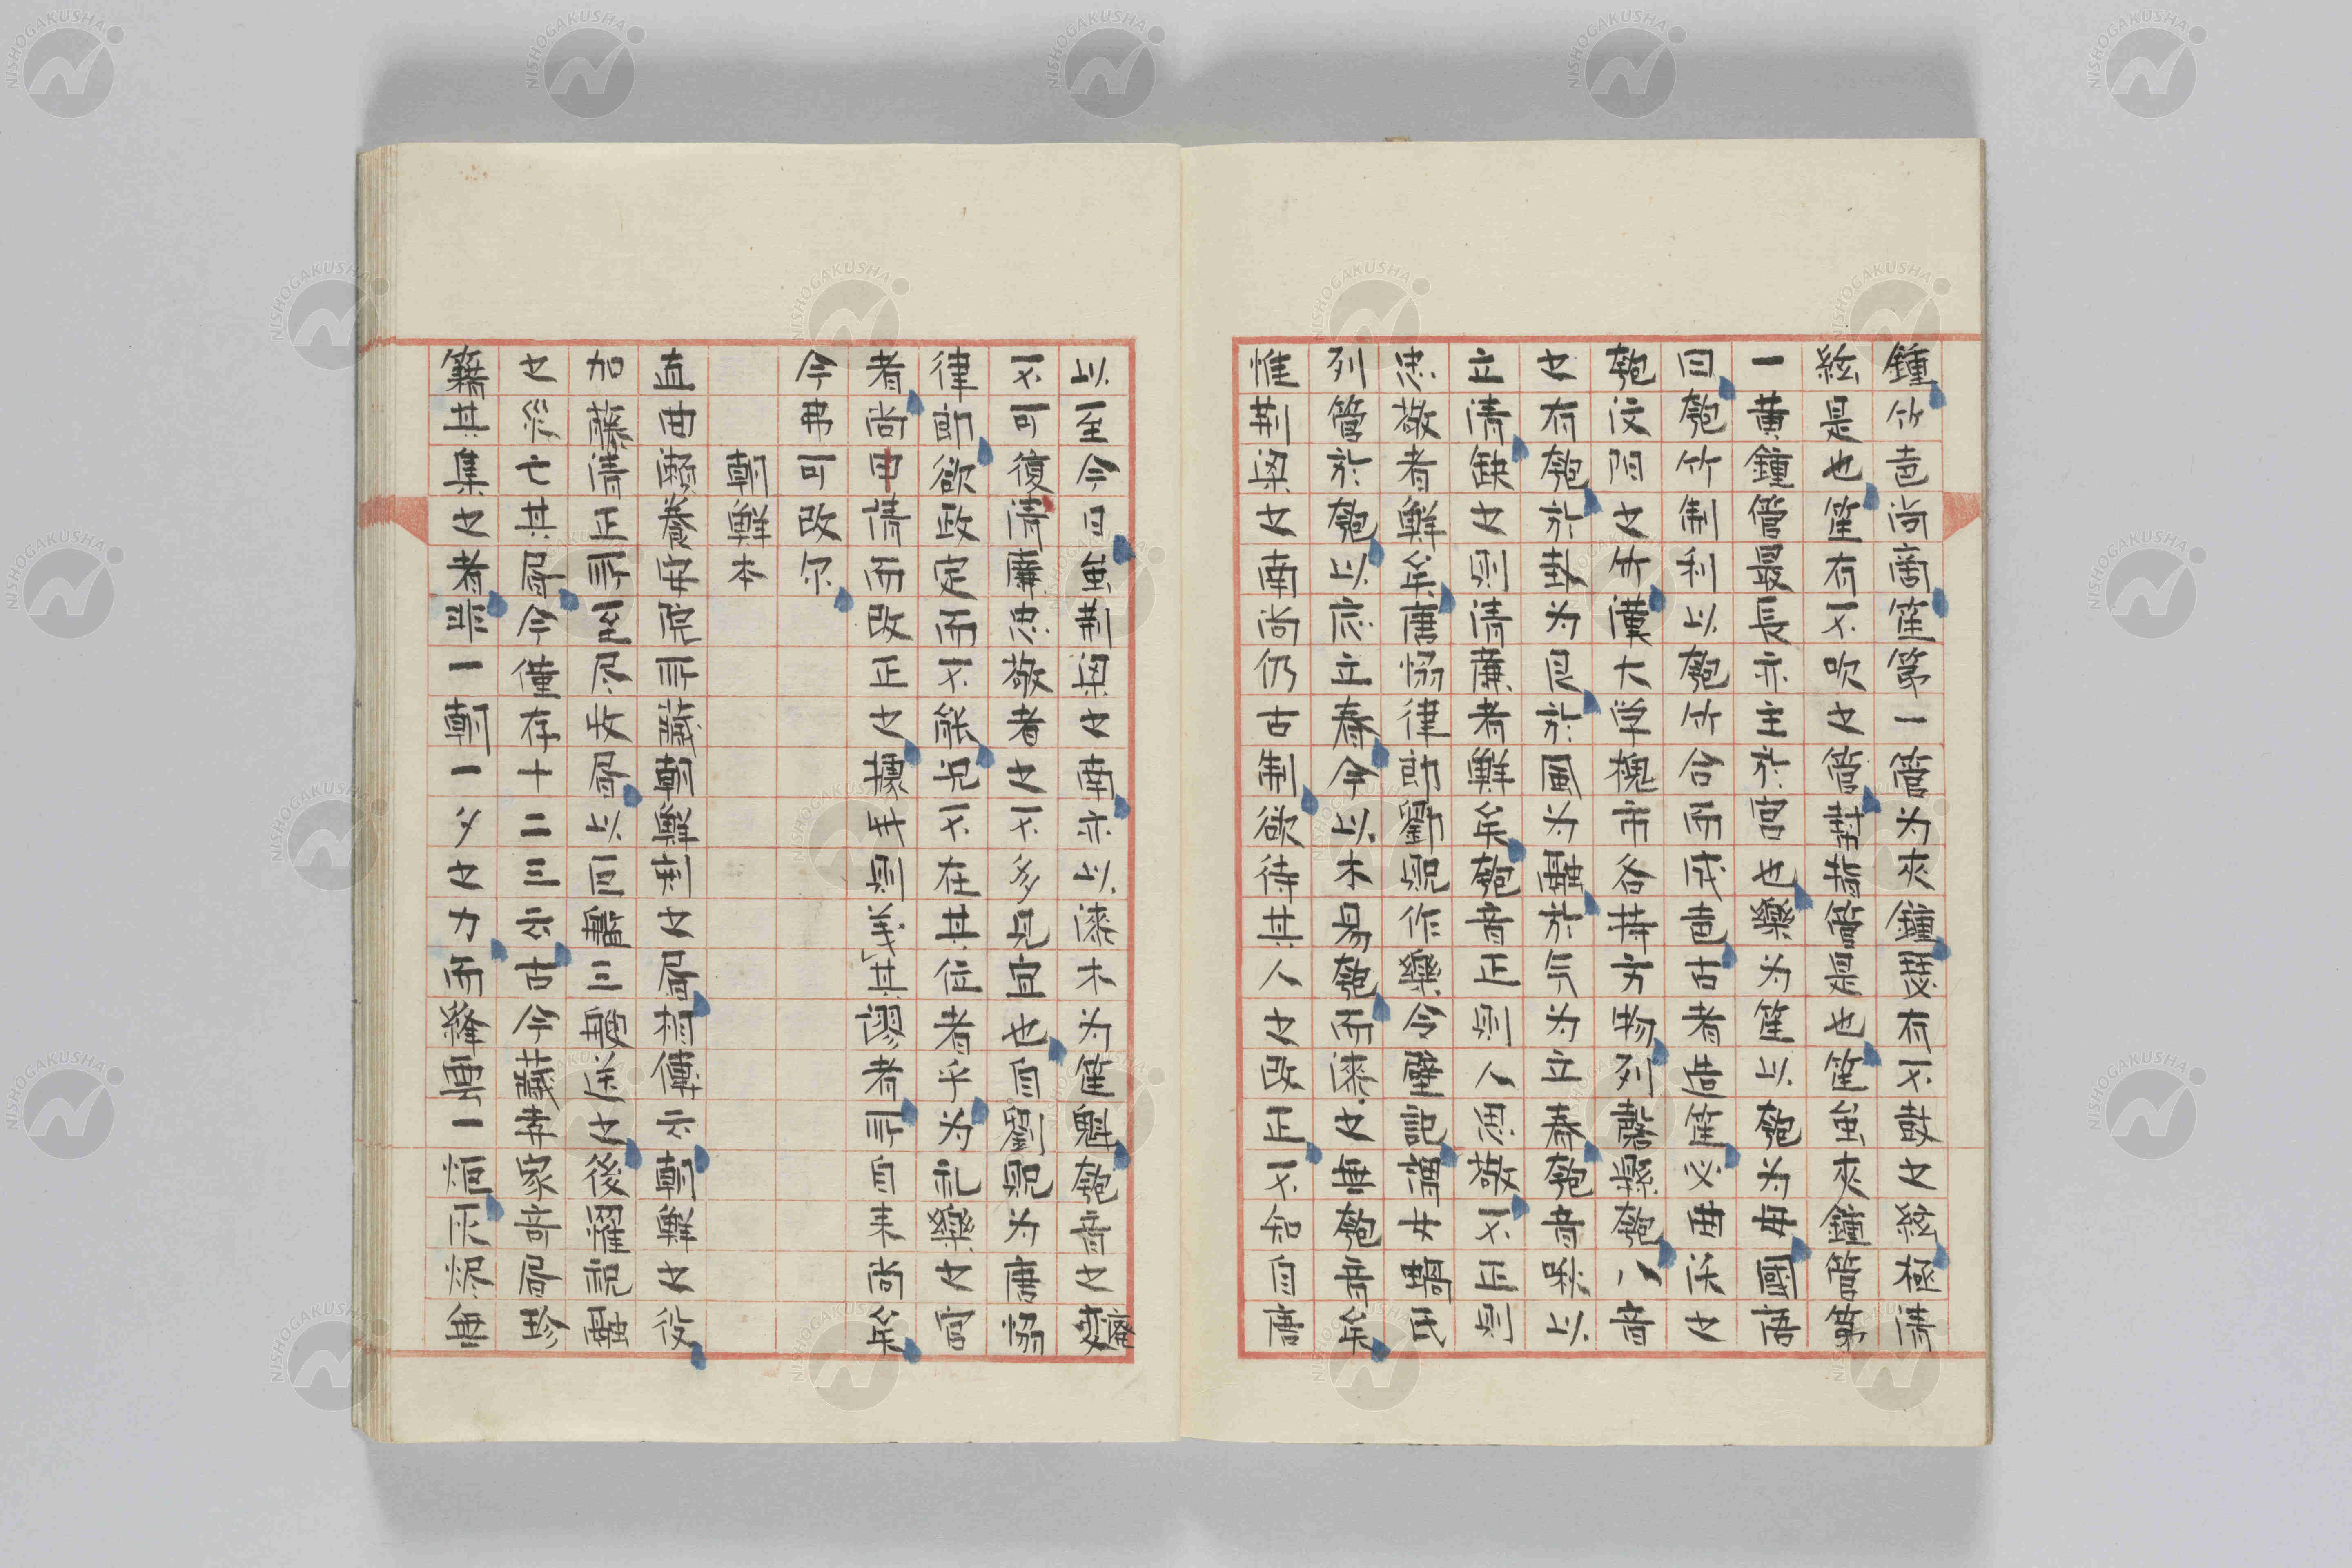 鍾竹竜尚商笙第一管为夾鐘瑟有不鼓之絃極清
絃是也笙有不吹之管對指管是也笙虽夾鐘管第
一黄鍾管最長亦主於宮也樂为笙以匏为母國語
曰匏竹制利以匏竹合而成竜古者造笙必曲沃之
匏汶阳之竹漢大学槐市各持方物列磬懸匏八音
之有匏於卦为艮於風为融於气为立春匏音啾以
立清缺之則清廉者鮮矣匏音正則人思敬不正則
忠敬者鮮矣唐恊律郎劉貺作樂令壁記謂女媧氏
列管於匏以应立春今以木易匏而漆之無匏音矣
惟荆梁之南尚仍古制欲待其人之改正不知自唐
以至今日虽荆梁之南亦以漆木为笙魁匏音之廢
不可復清廉忠敬者之不多見宜也自劉貺为唐協
律郎欲改定而不能況不在其位者乎为礼樂之官
者尚申請而改正之據其則義其謬者示自来尚矣
今弗可改尔
朝鮮本
直曲瀬養安院所藏朝鮮刻之局相傳云朝鮮之役
加藤清正所至尽收局以巨艦三艘送之後濯説罹
之災亡其局今僅存十二三云古今藏弆家奇局珍
籍其集之者非一朝一夕之力而降車一炬灰燼無